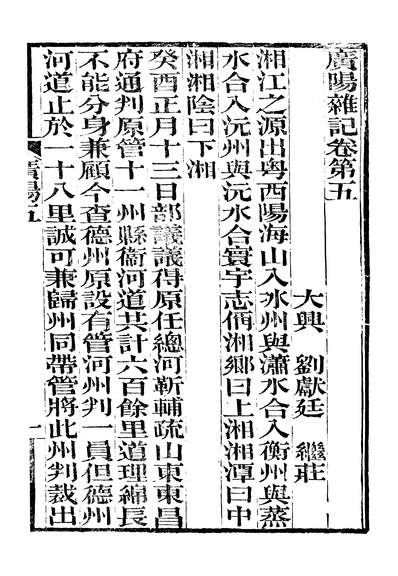 廣陽雜記卷第五
大興　劉獻廷　繼莊
湘江之源出粵西陽海山入永州與瀟水合入衡州與蒸
水合入沅州與沅水合寰宇志偁湘鄉曰上湘湘潭曰中
湘湘陰曰下湘
癸酉正月十三日部議議得原任總河靳輔疏山東東昌
府通判原管十一州縣衞河道共計六百餘里道理緜長
不能分身兼顧今查德州原設有管河州判一員但德州
河道止於一十八里誠可兼歸州同帶管將此州判裁出
廣陽五
一